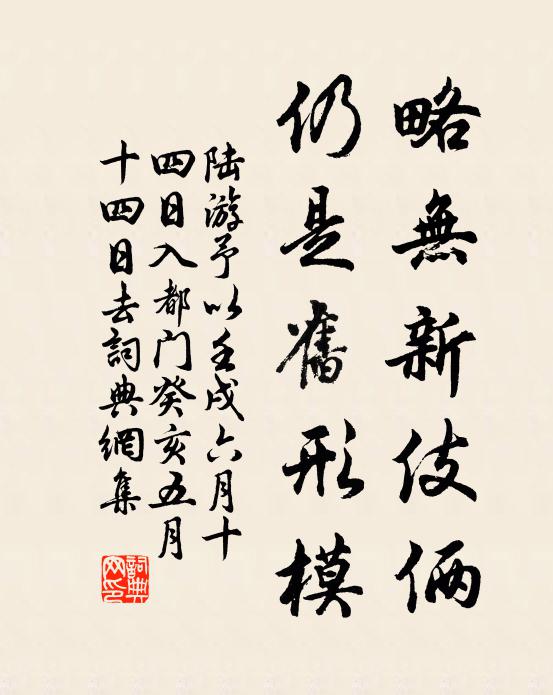 略無新伎倆
仍是舊形模
陸游予以壬戌六月十
四日入都門癸亥五月
十四日去詞典網集
詞典网印